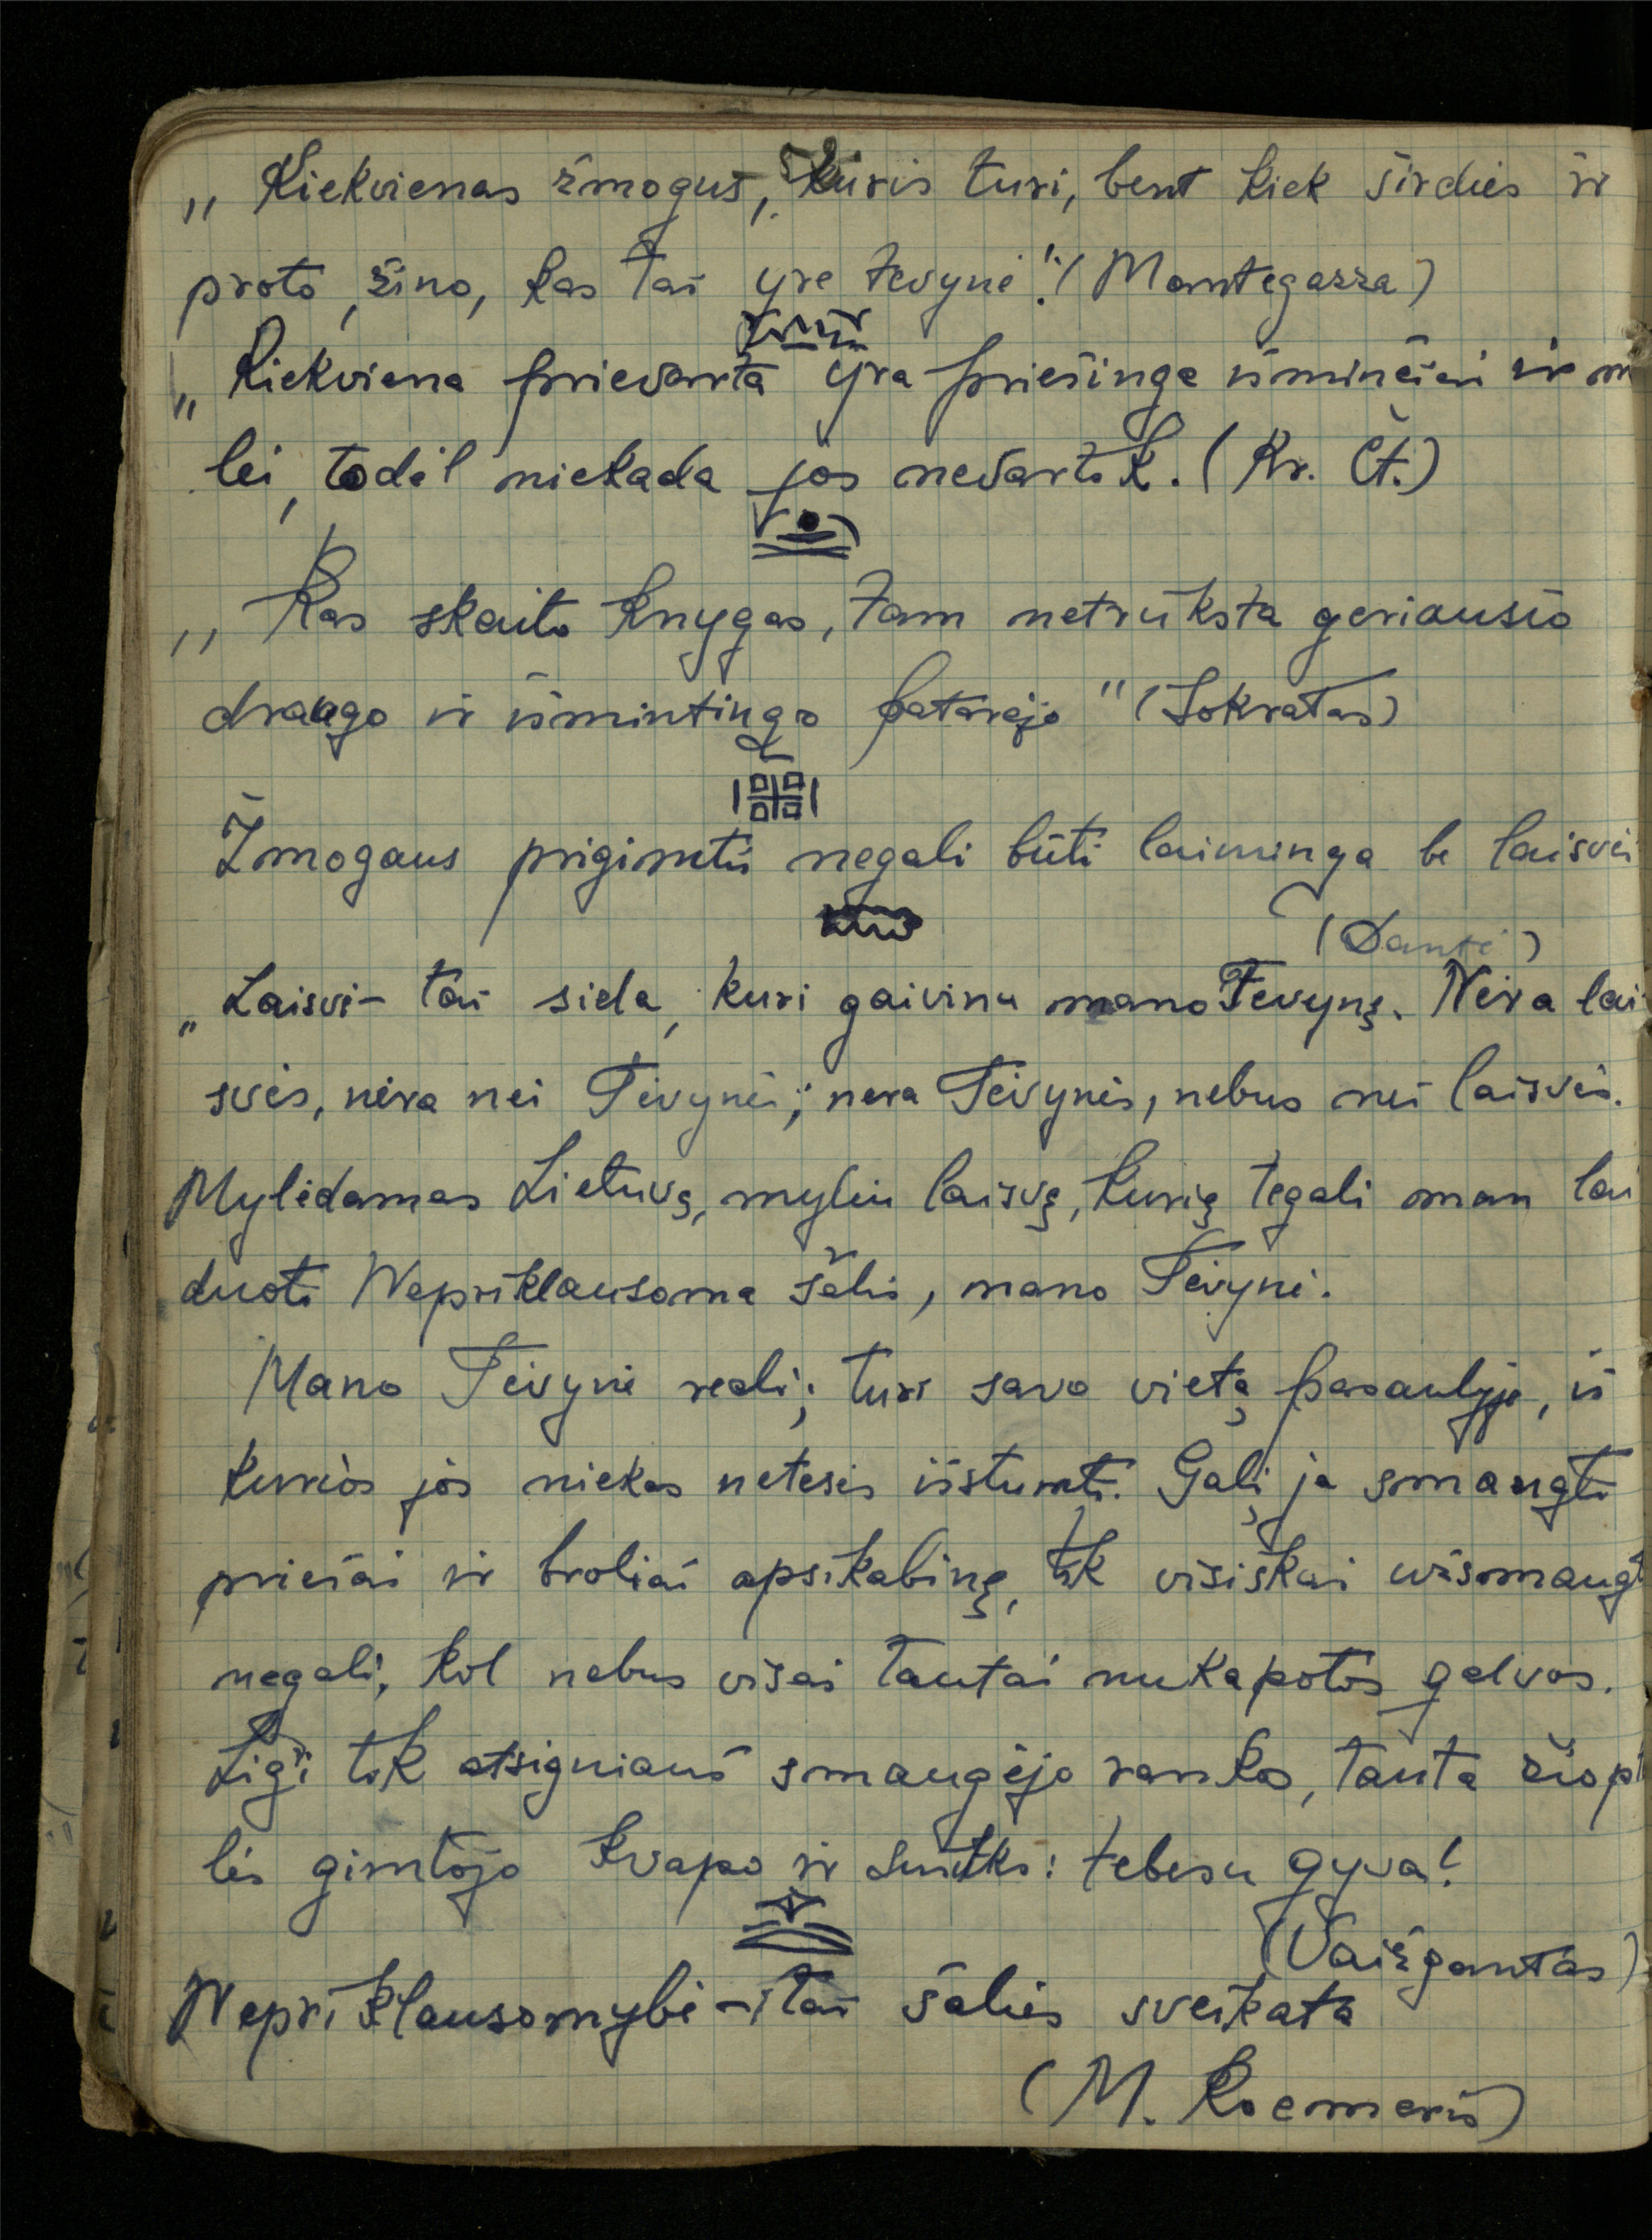 „Kiekvienas žmogus, kuris turi, bent kiek širdies ir
proto, žino, kas tai yra tėvynė". (Mantegazza)
„Kiekviena prievarta yra priešinga išminčiai ir m
lei, todėl niekada jos nevartok. (Kr. Čt.)
„Kas skaito knygas, tam netrūksta geriausio
draugo ir išmintingo patarėjo" (Sokratas)
Žmogaus prigimtis negali būti laiminga be laisvės
(Dantė)
„Laisvė – tai siela, kuri gaivina mano Tėvynę. Nėra lai
svės, nėra nei Tėvynės; nėra Tėvynės, nebus nei laisvės.
Mylėdamas Lietuvą, myliu laisvę, kurią tegali man lai
duoti Nepriklausoma šalis, mano Tėvynė.
Mano Tėvynė reali; turi savo vietą pasaulyje, iš
kurios jos niekas neteisės išstumti. Gali ją smaugti
priešai ir broliai apsikabinę, tik visiškai užsmaugt
negali, kol nebus visai tautai nukapotos galvos.
Ligi tik atsigniauš smaugėjo rankos, tauta žiopt
lės gimtojo kvapo ir šnukš: tebesu gyva!
(Vaižgantas)
Nepriklausomybė – tai šalies sveikata
(M. Roemeris)